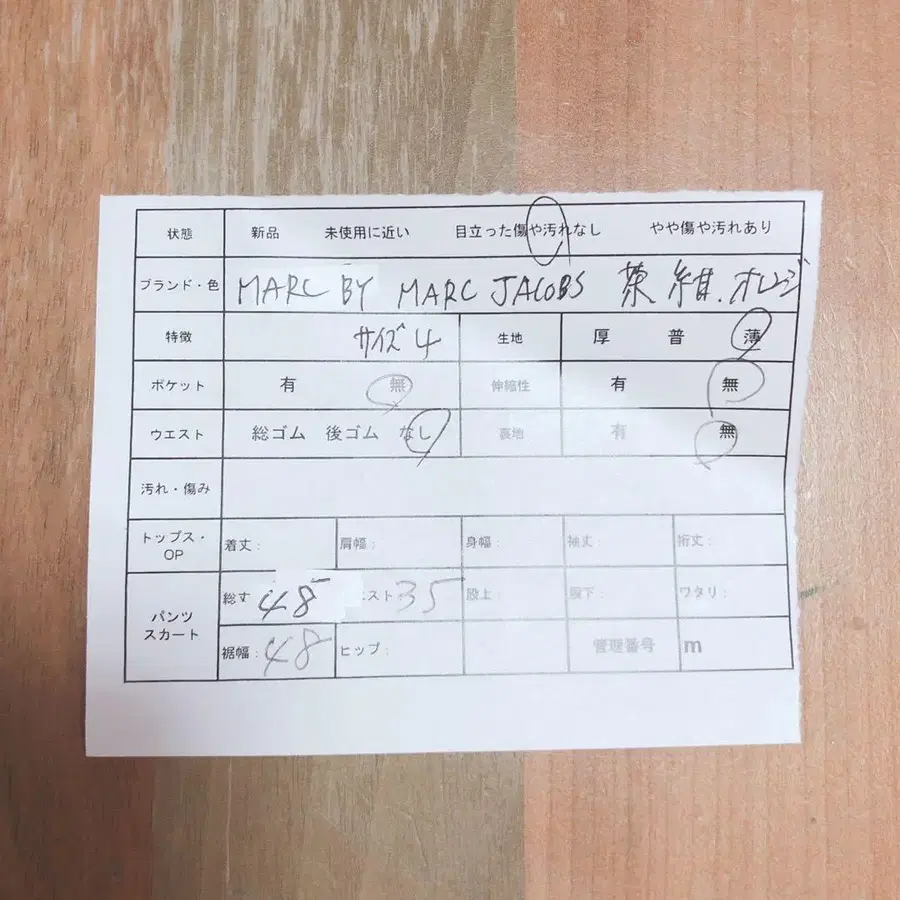 状態 新品 未使用に近い 目立った傷や汚れなし やや傷や汚れあり
ブランド・色 MARC BY MARC JACOBS 茶 紺.オレンジ
特徴 サイズ4 生地 厚 普 薄
ポケット 有 無 伸縮性 有 無
ウエスト 総ゴム 後ゴム なし 裏地 有 無
汚れ・傷み
トップス・OP 着丈: 肩幅: 身幅: 袖丈: 裄丈:
パンツ スカート 総丈 48 エスト 35 股上: 股下: ワタリ:
裾幅: 48 ヒップ: 管理番号 m